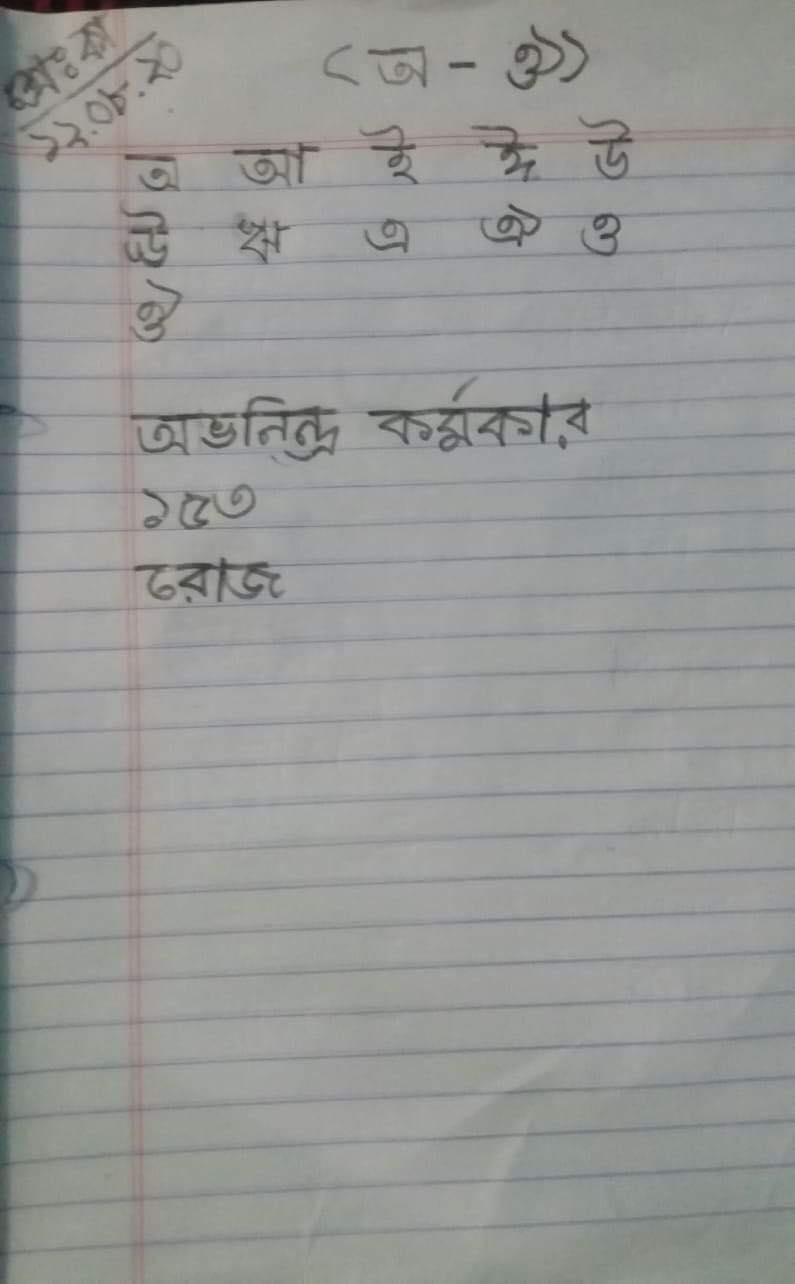 অ:ক
(অ - ঔ)
অ আ ই ঈ উ
ঊ ঋ এ ঐ ও
ঔ
অভনিন্দ্র কর্মকার
১৫৩
রোজ